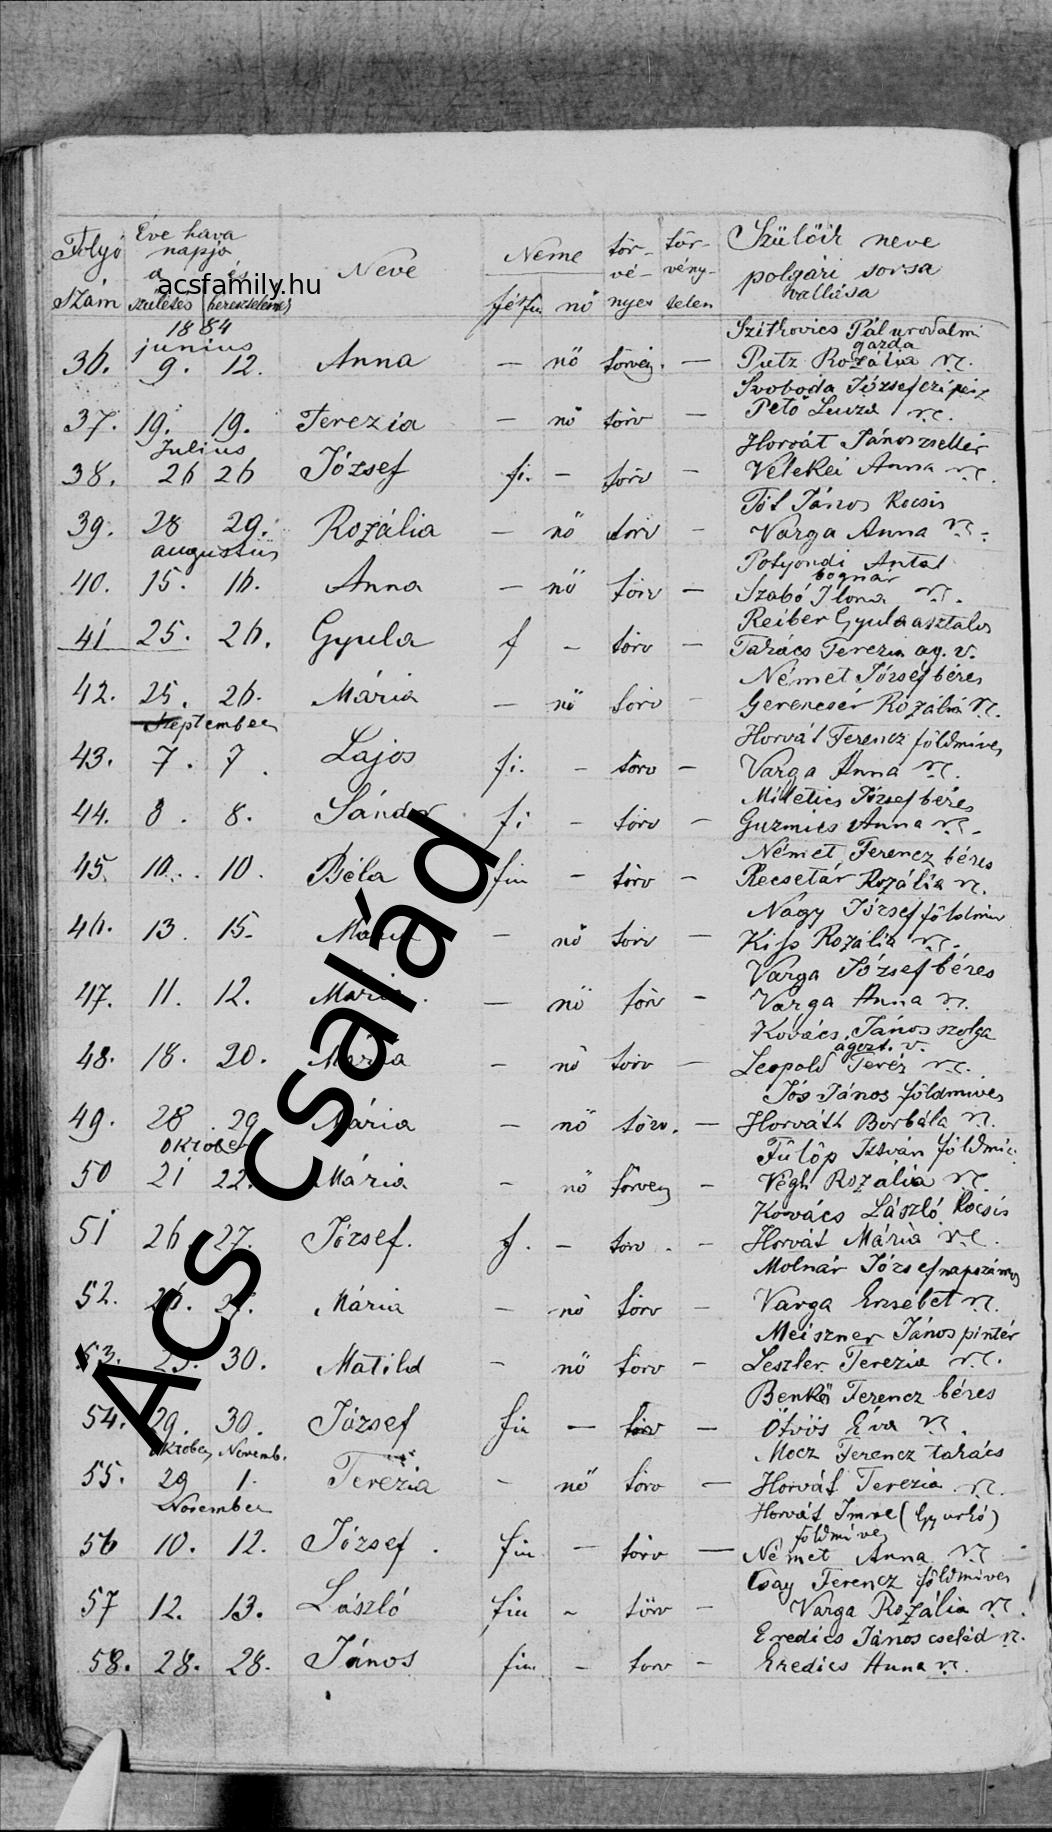 Folyó szám
Éve hava napja a születés és keresztelésnek
Neve
Neme férfiu nö
törvényes
törvénytelen
Szülőik neve polgári sorsa vallása
acsfamily.hu
1884
Szitkovics Pál urodalmi
junius
gazda
36. 9. 12. Anna — nö törvény. — Putz Rozália r.c.
Svoboda József czipész
37. 19. 19. Terezia — nö törv — Pető Luiza r.c.
Julius
Horvát János zsellér
38. 26 26 József fi. — törv — Velekei Anna r.c.
Tót János Kocsis
39. 28 29. Rozália — nö törv — Varga Anna r.c.
augustus
Potyondi Antal
bognár
40. 15. 16. Anna — nö törv — Szabó Ilona r.c.
Reiber Gyula asztalos
41 25. 26. Gyula f — törv — Takács Terezia ag. v.
Német József béres
42. 25. 26. Mária — nö törv — Gerencsér Rózália r.c.
September
Horvát Ferencz földmives
43. 7. 7. Lajos fi. — törv — Varga Anna r.c.
Milletics József béres
44. 8. 8. Sándor fi — törv — Guzmics Anna r.c.
Német Ferencz béres
45. 10. 10. Béla fiu — törv — Recsetár Rozália r.c.
Nagy József földmiv
46. 13. 15. Mária — nö törv — Kiss Rozália r.c.
Varga József béres
47. 11. 12. Mária. — nö törv — Varga Anna r.c.
Kovács János szolga
ágozt. v.
48. 18. 20. Mária — nö törv — Leopold Teréz r.c.
Jós János földmives
49. 28. 29 Mária — nö törv. — Horváth Borbála r.c.
október
Fülöp István földmiv
50 21 22. Mária — nö törveny — Végh Rozália r.c.
Kovács László Kocsis
51 26 27. József. f. — törv. — Horvát Mária r.c.
Molnár József napszámos
52. 26. Mária — nö törv — Varga Erzsébet r.c.
Meiszner János pintér
53. 30. Matild — nö törv — Leszler Terezia r.c.
Benkő Ferencz béres
54. 29. 30. József fiu — törv — Ötvös Éva r.c.
Oktober Novemb.
Mocz Ferencz takács
55. 29 1. Terézia — nö törv — Horvát Terezia r.c.
November
Horvát Imre (Gyurkó)
földmives
56 10. 12. József. fiu — törv — Német Anna r.c.
Csay Ferencz földmives
57 12. 13. László fiu — törv — Varga Rozália r.c.
Eredics János cseléd r.c.
58. 28. 28. János fiu — törv — Eredics Anna r.c.
Ács család